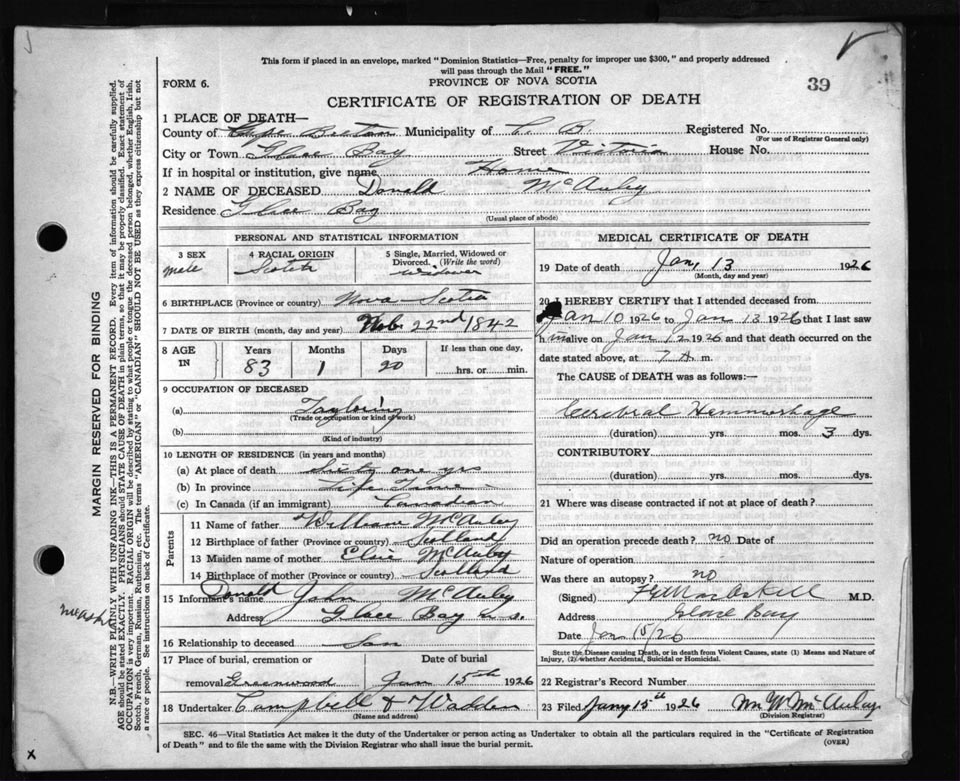 This form if placed in an envelope, marked "Dominion Statistics—Free, penalty for improper use $300," and properly addressed
will pass through the Mail "FREE."
FORM 6.
PROVINCE OF NOVA SCOTIA
39
CERTIFICATE OF REGISTRATION OF DEATH
1 PLACE OF DEATH—
County of Cape Breton Municipality of C. B. Registered No.
(For use of Registrar General only)
City or Town Glace Bay Street Victoria House No.
If in hospital or institution, give name Home
2 NAME OF DECEASED Donald McAuley
Residence Glace Bay
(Usual place of abode)
PERSONAL AND STATISTICAL INFORMATION
3 SEX
male
4 RACIAL ORIGIN
Scotch
5 Single, Married, Widowed or
Divorced. (Write the word)
Widower
6 BIRTHPLACE (Province or country) Nova Scotia
7 DATE OF BIRTH (month, day and year) 22nd 1842
8 AGE
IN
Years
83
Months
1
Days
20
If less than one day,
hrs. or min.
9 OCCUPATION OF DECEASED
(a) Tayloring
(Trade or occupation or kind of work)
(b)
(Kind of industry)
10 LENGTH OF RESIDENCE (in years and months)
(a) At place of death Sixty one yrs
(b) In province Life Time
(c) In Canada (if an immigrant) Canadian
Parents
11 Name of father William McAuley
12 Birthplace of father (Province or country) Scotland
13 Maiden name of mother Elsie McAuley
14 Birthplace of mother (Province or country) Scotland
15 Informant's name Donald John McAuley
Address Glace Bay
16 Relationship to deceased Son
17 Place of burial, cremation or
removal Greenwood
Date of burial
Jan 15th 1926
18 Undertaker Campbell & Wadden
(Name and address)
MEDICAL CERTIFICATE OF DEATH
19 Date of death Jan, 13 1926
(Month, day and year)
20 I HEREBY CERTIFY that I attended deceased from
Jan 10 1926 to Jan 13 1926 that I last saw
him alive on Jan 12 1926 and that death occurred on the
date stated above, at 7 A m.
The CAUSE of DEATH was as follows:—
Cerebral Hemmorhage
(duration) yrs. mos. 3 dys.
CONTRIBUTORY
(duration) yrs. mos. dys.
21 Where was disease contracted if not at place of death?
Did an operation precede death? no Date of
Nature of operation
Was there an autopsy? no
(Signed) M.D.
Address Glace Bay
Date Jan 15/26
State the Disease causing Death, or in death from Violent Causes, state (1) Means and Nature of
Injury, (2) whether Accidental, Suicidal or Homicidal.
22 Registrar's Record Number
23 Filed Jany 15th 1926 McAulay
(Division Registrar)
SEC. 46—Vital Statistics Act makes it the duty of the Undertaker or person acting as Undertaker to obtain all the particulars required in the "Certificate of Registration
of Death" and to file the same with the Division Registrar who shall issue the burial permit.
(OVER)
MARGIN RESERVED FOR BINDING
N.B.—WRITE PLAINLY, WITH UNFADING INK—THIS IS A PERMANENT RECORD. Every item of information should be carefully supplied.
AGE should be stated EXACTLY. PHYSICIANS should STATE CAUSE OF DEATH in plain terms, so that it may be properly classified. Exact statement of
OCCUPATION is very important. RACIAL ORIGIN will be described by stating to what people or tongue the deceased person belonged, whether English, Irish,
Scotch, French, German, Russian, Ruthenian, etc. The terms "AMERICAN" or "CANADIAN" SHOULD NOT BE USED as they express citizenship but not
a race or people. See instructions on back of Certificate.
x